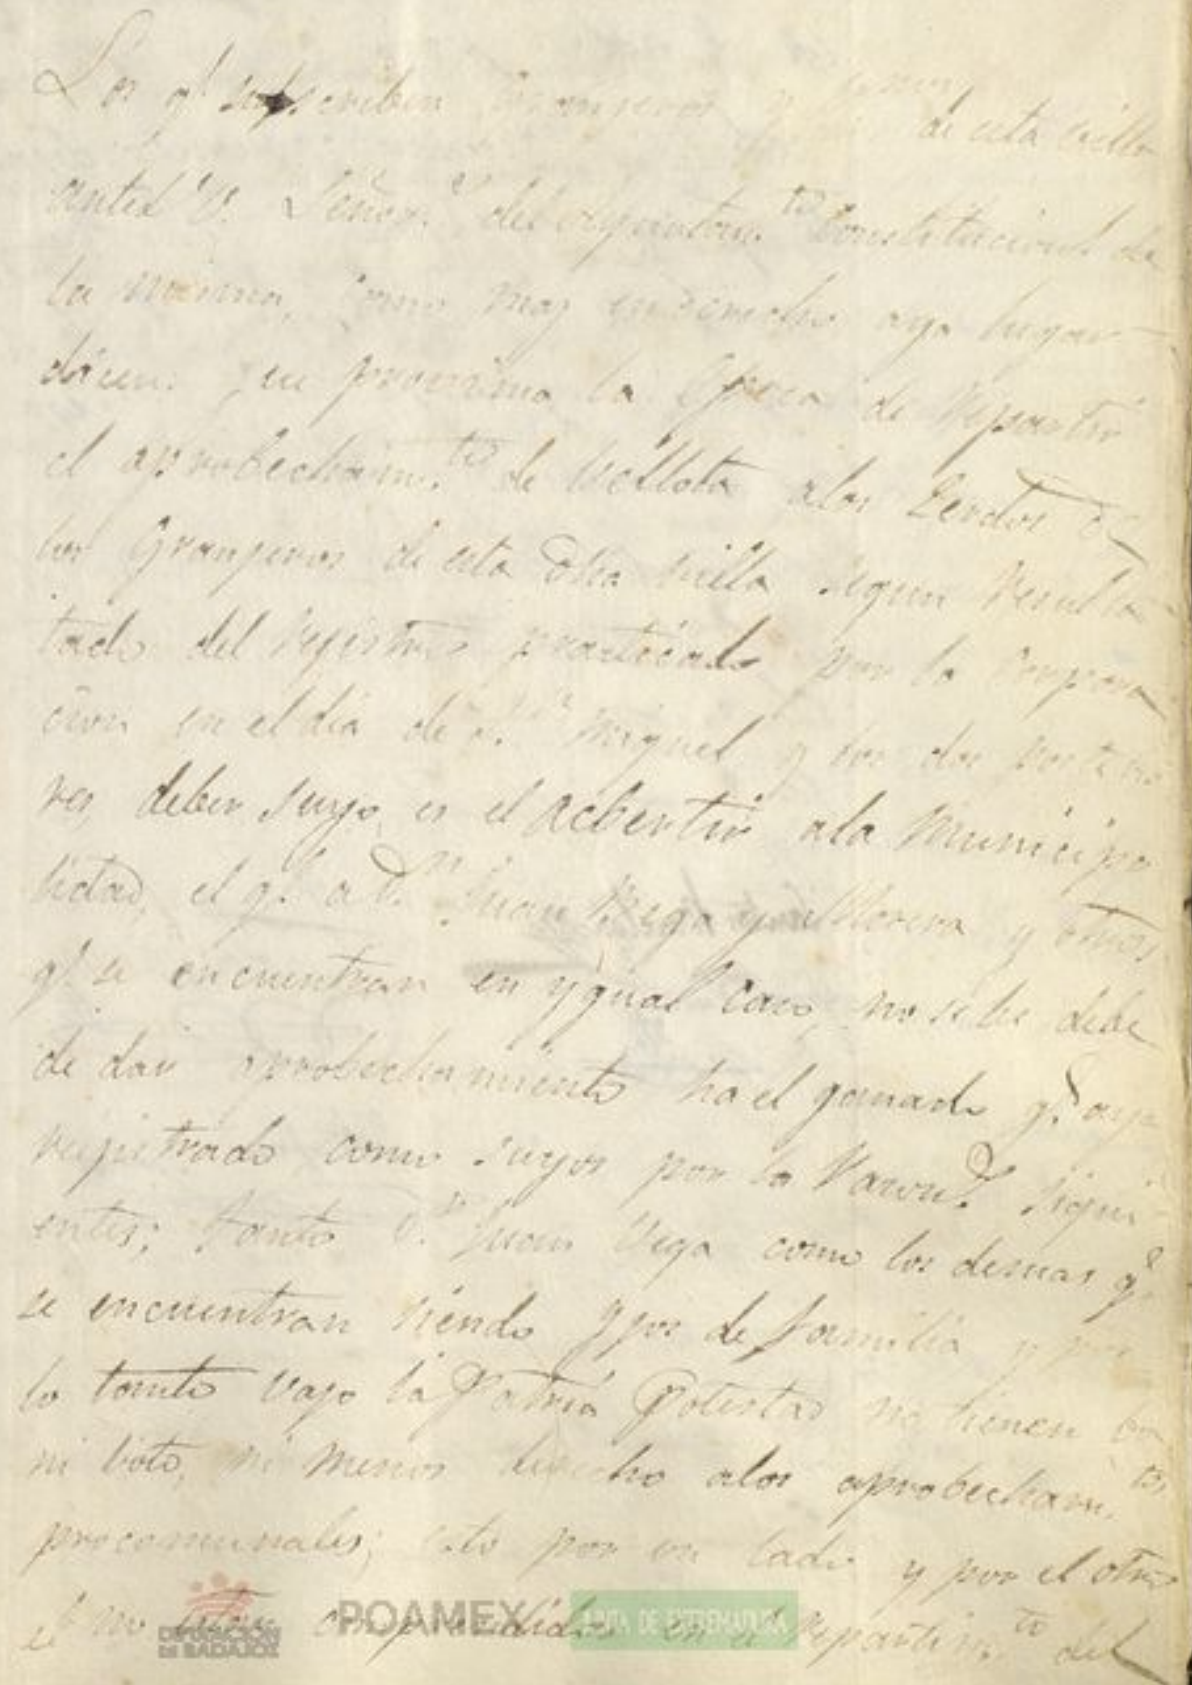 Los q.e subscriben Granjeros y de esta villa
antes V. Señor.s del Ayuntam.to Constitucional de
la misma, como mas en derecho aya lugar
dicen: que procsima la Epoca de repartir
el aprobecham.to de bellota alos Zerdos de
los Granjeros de esta dha villa segun resul
tado del registro practicado por la Corpora
cion en el dia de S.n Miguel y los dos posterio
res, deber suyo es el acbertir ala Municipa
lidad, el q.e a D.n Juan Vega y Moreno y otros
q.e se encuentran en ygual caso, no se les debe
de dar aprobechamiento ha el ganado q.e aya
rejistrado como suyos por la razon.s sigui
entes; tanto D.n Juan Vega como los demas q.e
se encuentran siendo yjos de familia y por
lo tanto vajo la Patria Potestad no tienen
ni boto, ni menos derecho alos aprobecham.tos
procomunales; esto por un lado y por el otro
el no estar conprendidos en el Repartim.to del
DIPUTACIÓN DE BADAJOZ
POAMEX
JUNTA DE EXTREMADURA